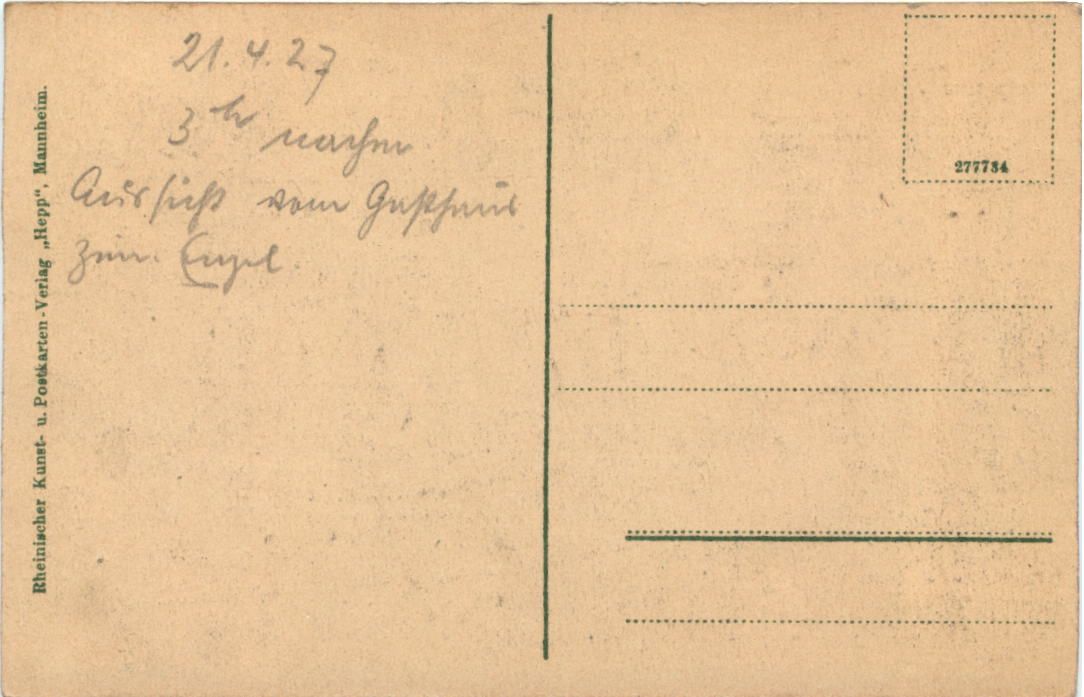 21.4.27
3 h nachm
Aussicht vom Gasthaus
zum Engel
Rheinischer Kunst- u. Postkarten-Verlag „Hepp“, Mannheim.
277734